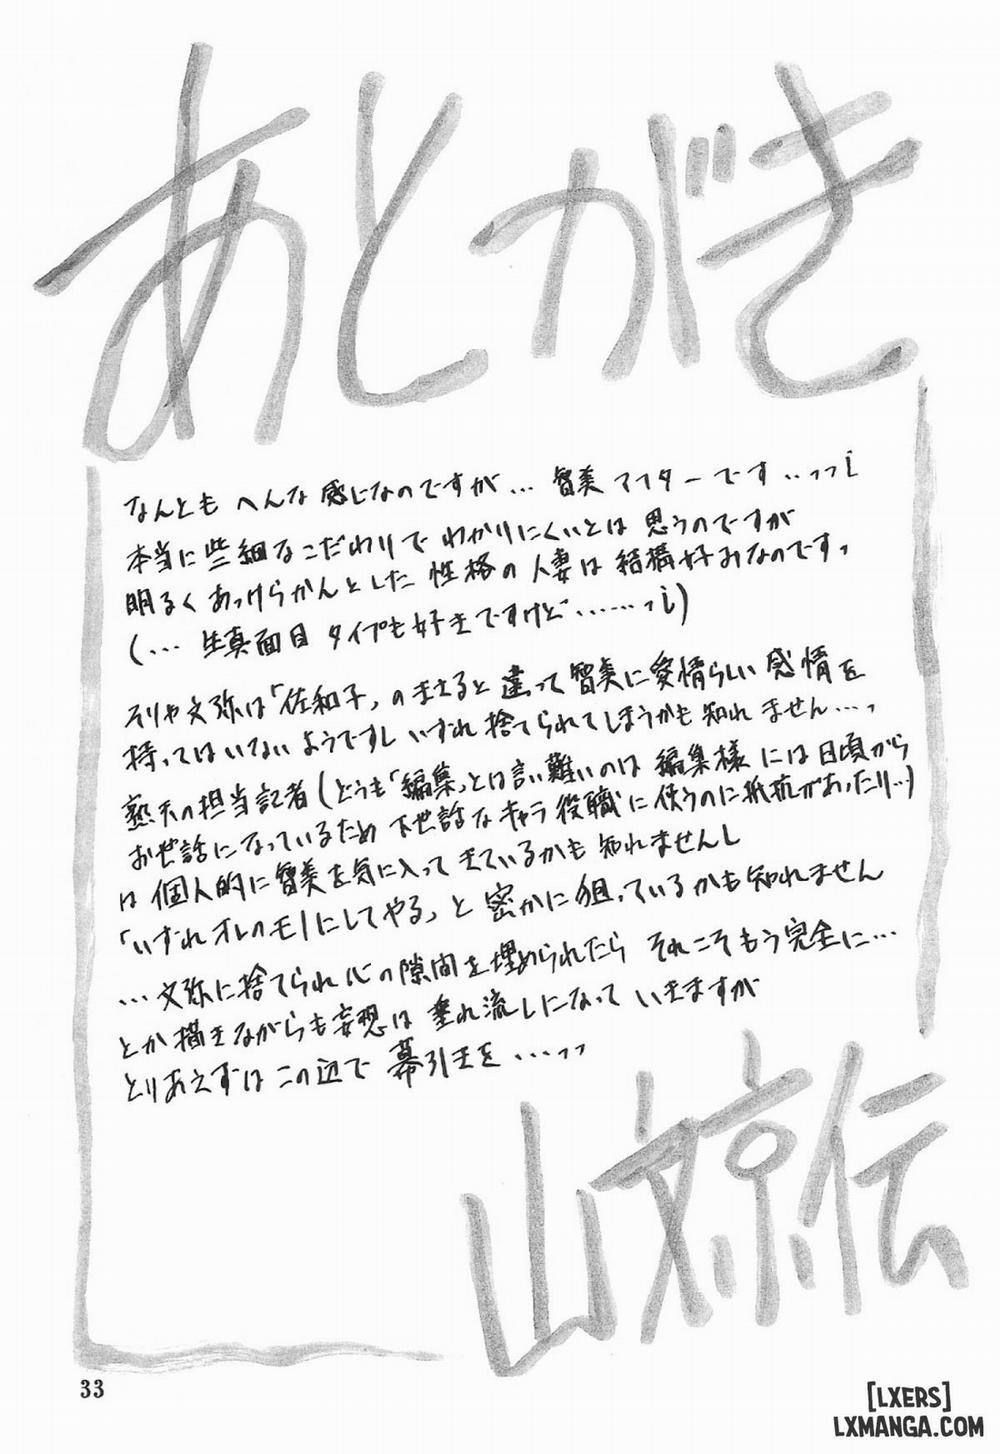 あとがき
なんとも へんな 感じなのですが… 智美 アフターです…っっ;
本当に些細なこだわりで わかりにくいとは 思うのですが
明るく あっけらかんとした 性格の 人妻は 結構好みなのです。
(… 生真面目 タイプも 好きですけど……っ;)
そりゃ文弥は「佐和子」の まさると 違って 智美に愛情らしい 感情を
持ってはいない ようですし いずれ 捨てられてしまうかも 知れ ません…。
熟天の担当記者(どうも「編集」とは言い難いのは 編集様 には 日頃から
お世話になっているため 下世話な キャラ 役職に 使うのに抵抗があったり…)
は 個人的に 智美を気に入って きているかも 知れませんし
「いずれオレのモノにしてやる」と 密かに狙っているかも知れません
…文弥に捨てられ 心の隙間を埋められたら それこそもう完全に…
とか描きながらも妄想は 垂れ流しになって いきますが
とりあえずは この辺で 幕引きを …っっ
山文京伝
33
[LXERS]
LXMANGA.COM